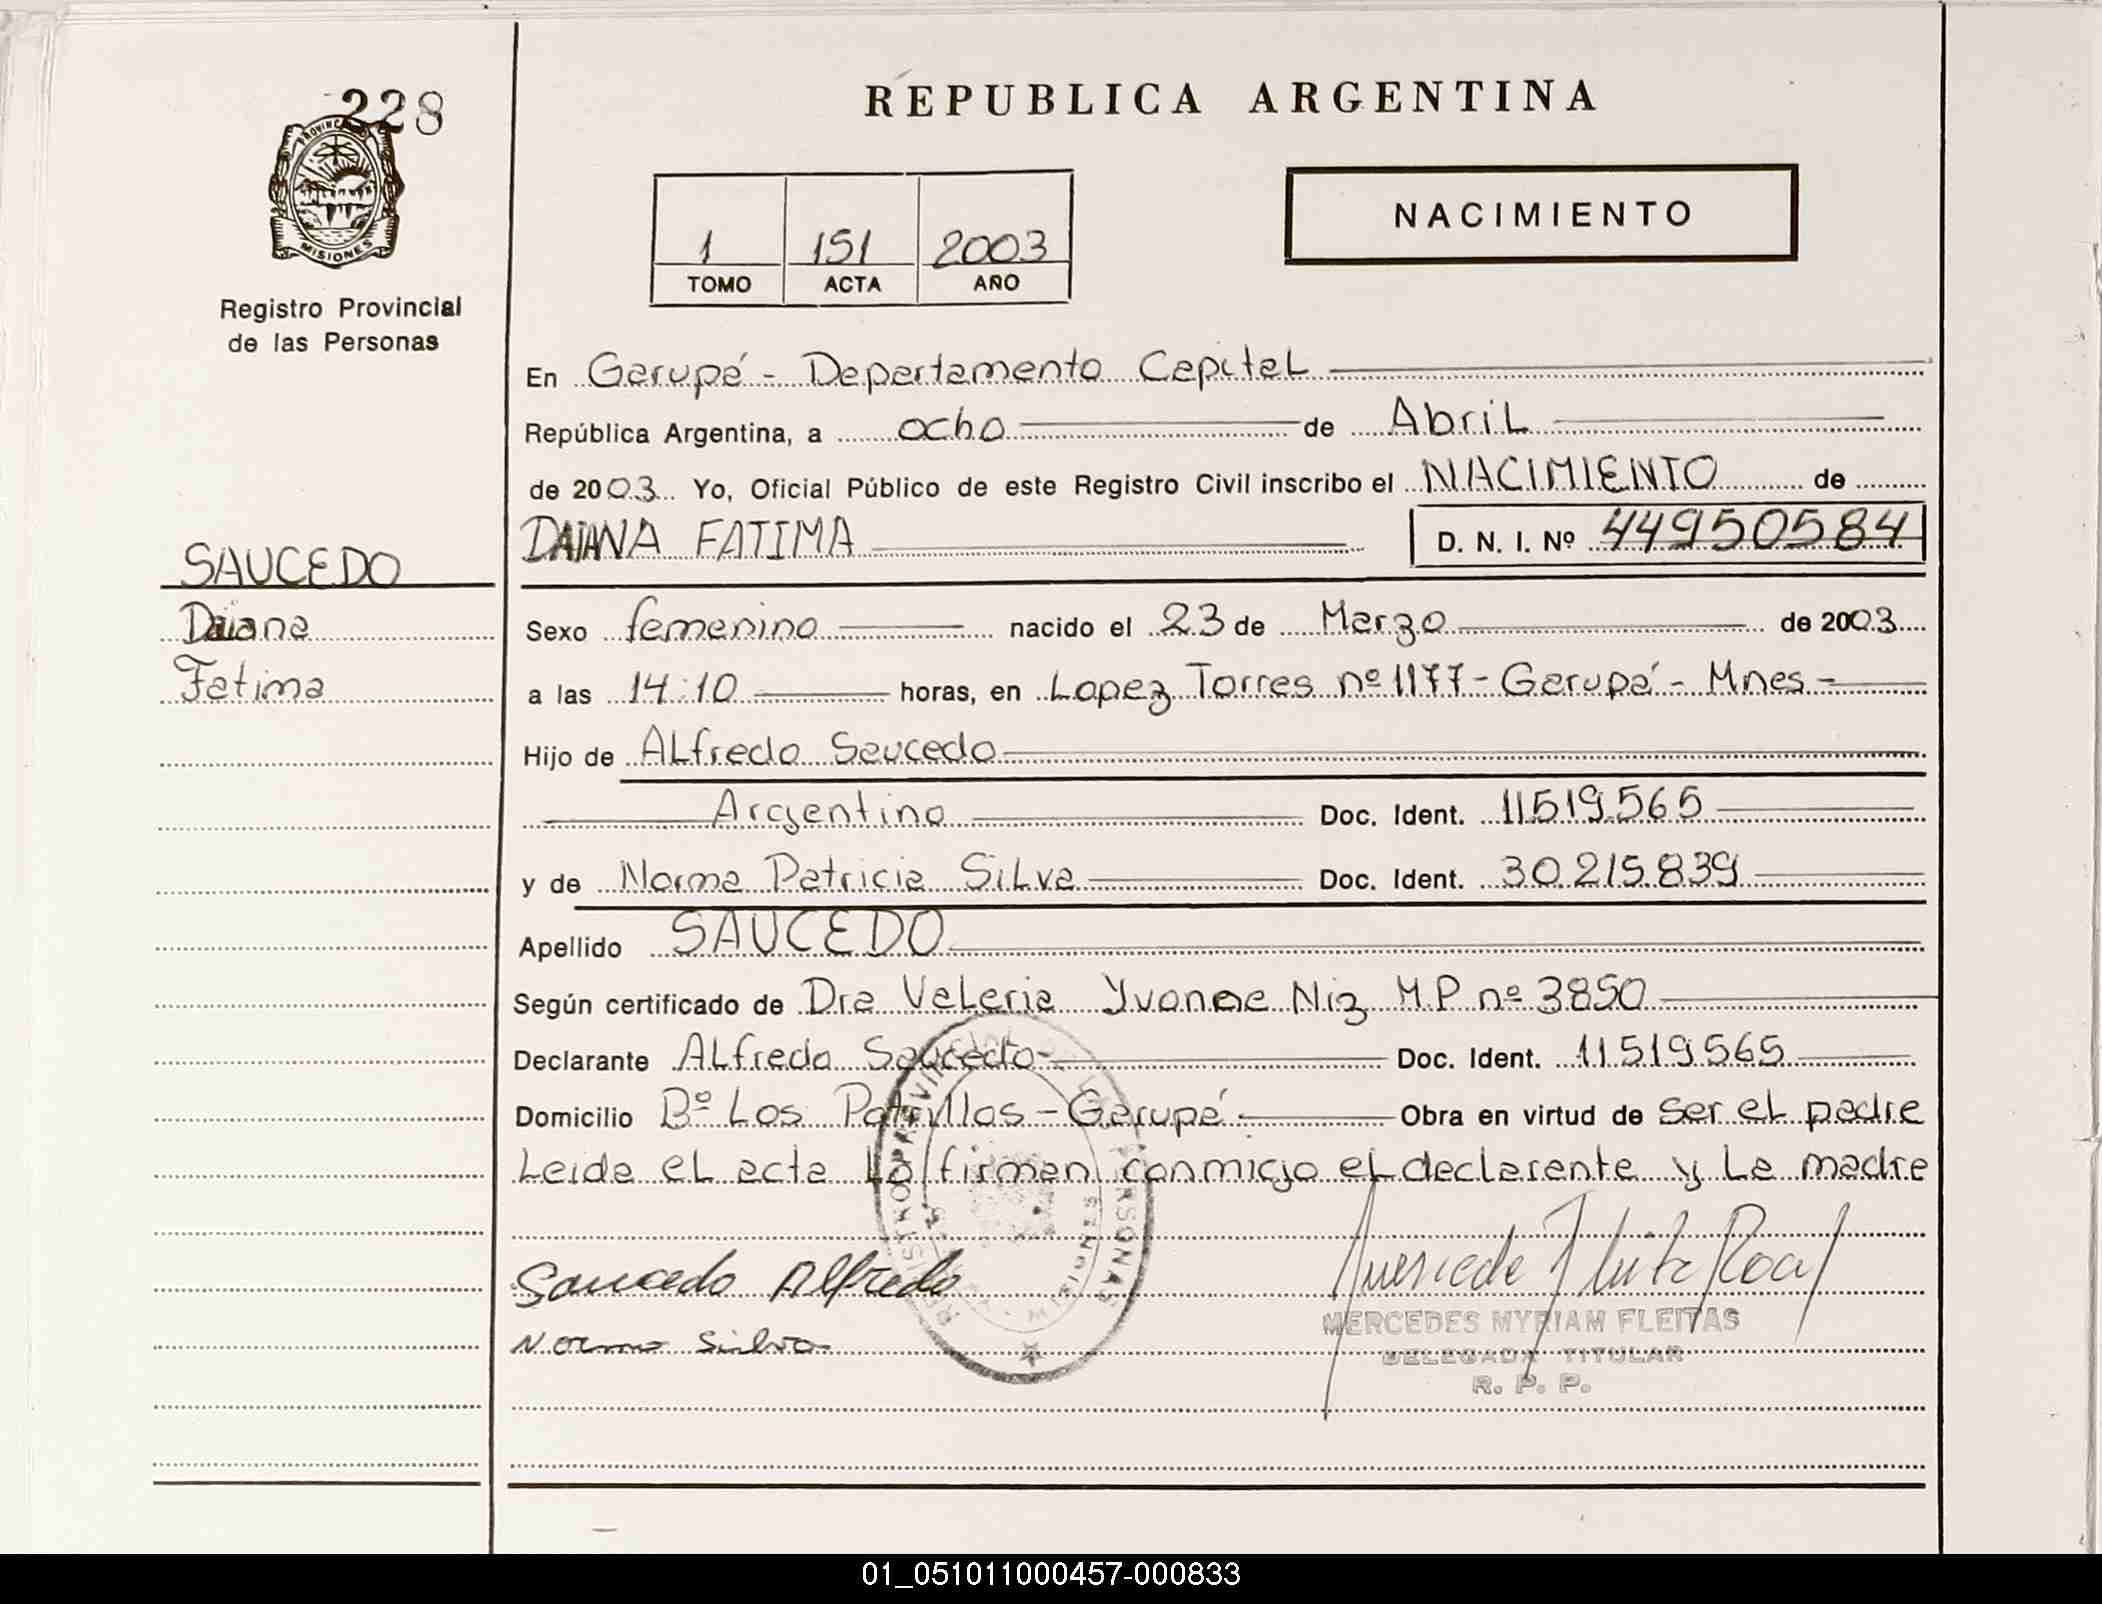 228
PROVINCIA DE
MISIONES
Registro Provincial
de las Personas
REPUBLICA ARGENTINA
1 151 2003
TOMO ACTA AÑO
NACIMIENTO
En Garupá - Departamento Capital
República Argentina, a ocho de Abril
de 2003 Yo, Oficial Público de este Registro Civil inscribo el NACIMIENTO de
DAIANA FATIMA D. N. I. Nº 44950584
SAUCEDO
Daiana
Fatima
Sexo femenino nacido el 23 de Marzo de 2003
a las 14:10 horas, en Lopez Torres nº 1177 - Garupá - Mnes -
Hijo de Alfredo Saucedo
Argentino Doc. Ident. 11519.565
y de Norma Patricia Silva Doc. Ident. 30.215.839
Apellido SAUCEDO
Según certificado de Dra Valeria Yvonne Niz M.P nº 3850
Declarante Alfredo Saucedo Doc. Ident. 11519565
Domicilio Bº Los Potrillos - Garupá Obra en virtud de ser el padre
Leida el acta la firman conmigo el declarante y la madre
Saucedo Alfredo
Norma Silva
REGISTRO PROVINCIAL DE LAS PERSONAS
MISIONES
MERCEDES MYRIAM FLEITAS
DELEGADA TITULAR
R. P. P.
01_051011000457-000833